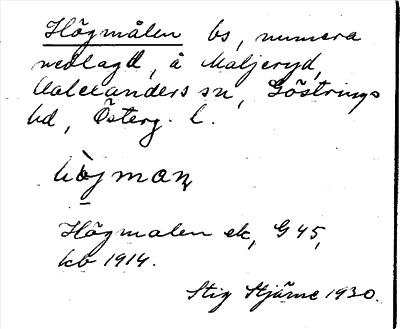 Högmålen bs, numera
nedlagd, å Maljeryd,
Valexanders sn, Göstrings
hd, Österg. l.
Högmalen ek, G 45,
kb 1914.
Stig Stjärne 1930.